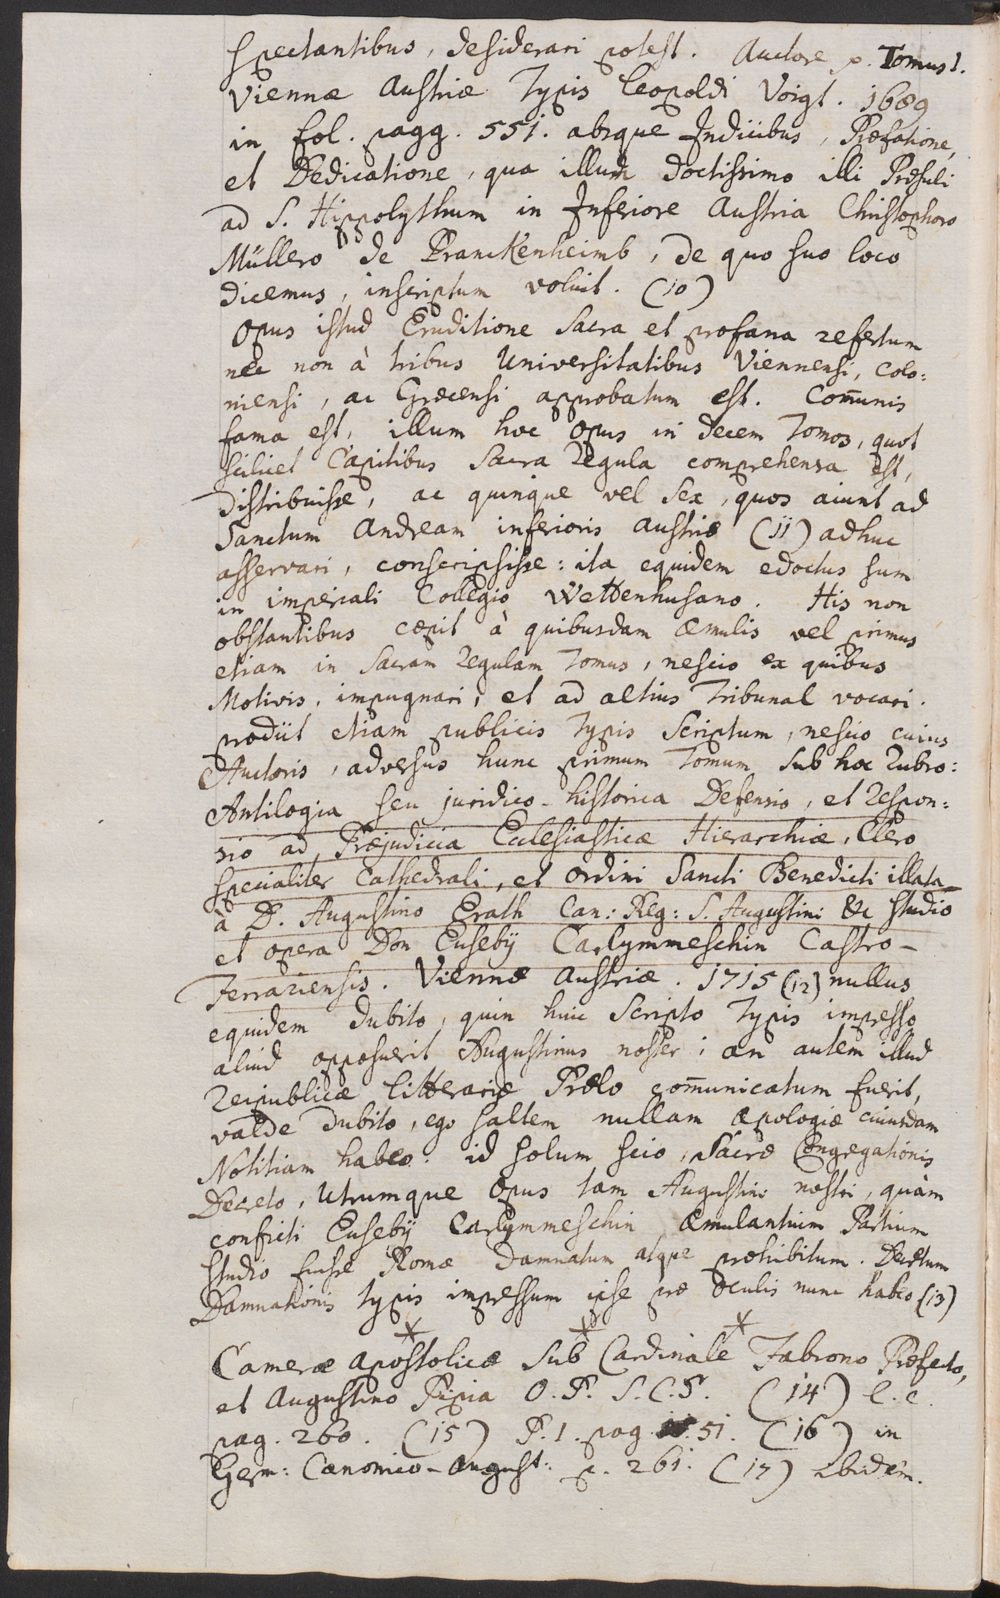 spectantibus, desiderari potest. Auctore p. Tomus 1.
Viennæ Austriæ Typis Leopoldi Voigt. 1689
in fol. pagg. 551. absque Indicibus, Præfatione,
et Dedicatione, qua illum doctissimo illi Præsuli
ad S. Hippolythum in Inferiore Austria Christophoro
Müllero de Pranckenheimb, de quo suo loco
dicemus, inscriptum voluit. (10)
Opus istud Eruditione Sacra et profana refertum
nec non à tribus Universitatibus Viennensi, Colo:
niensi, ac Græcensi approbatum est. Com̄unis
fama est, illum hoc Opus in decem Tomos, quot
scilicet Capitibus Sacra Regula comprehensa est,
distribuisse, ac quinque vel sex, quos aiunt ad
Sanctum Andream inferioris Austriæ (11) adhuc
asservari, conscripsisse: ita equidem edoctus sum
in imperiali Collegio Wettenhusano. His non
obstantibus cœpit à quibusdam æmulis vel primus
etiam in Sacram Regulam Tomus, nescio ex quibus
Motivis, impugnari, et ad altius Tribunal vocari.
prodiit etiam publicis Typis Scriptum, nescio cuius
Auctoris, adversus hunc primum Tomum sub hoc Rubro:
Antilogia seu juridico-historica Defensio, et Respon:
sio ad Præjudicia Ecclesiasticæ Hierarchiæ, Clero
specialiter Cathedrali, et Ordini Sancti Benedicti illata
à D. Augustino Erath Can: Reg: S. Augustini &c studio
et opera Don Eusebij Carlymmeschin Castro-
Ferrariensis. Viennæ Austriæ. 1715 (12) nullus
equidem dubito, quin huic Scripto Typis impresso
aliud opposuerit Augustinus noster; an autem illud
Reipublicæ Litterariæ Prælo com̄unicatum fuerit,
valde dubito, ego saltem nullam apologiæ cuiusdam
Notitiam habeo: id solum scio, Sacræ Congregationis
Decreto, Utrumque Opus tam Augustini nostri, quàm
conficti Eusebij Carlymmeschin Æmulantium Partium
studio fuisse Romæ damnatum atque prohibitum. Decretum
Damnationis typis impressum ipse præ oculis nunc habeo (13)
* * *
Cameræ Apostolicæ sub Cardinale Fabrono Præfecto,
et Augustino Pipia O. P. S. C. S. (14) l. c.
pag. 260. (15) P. 1. pag 51. (16) in
Germ: Canonico-August: p. 261. (17) ibidem.